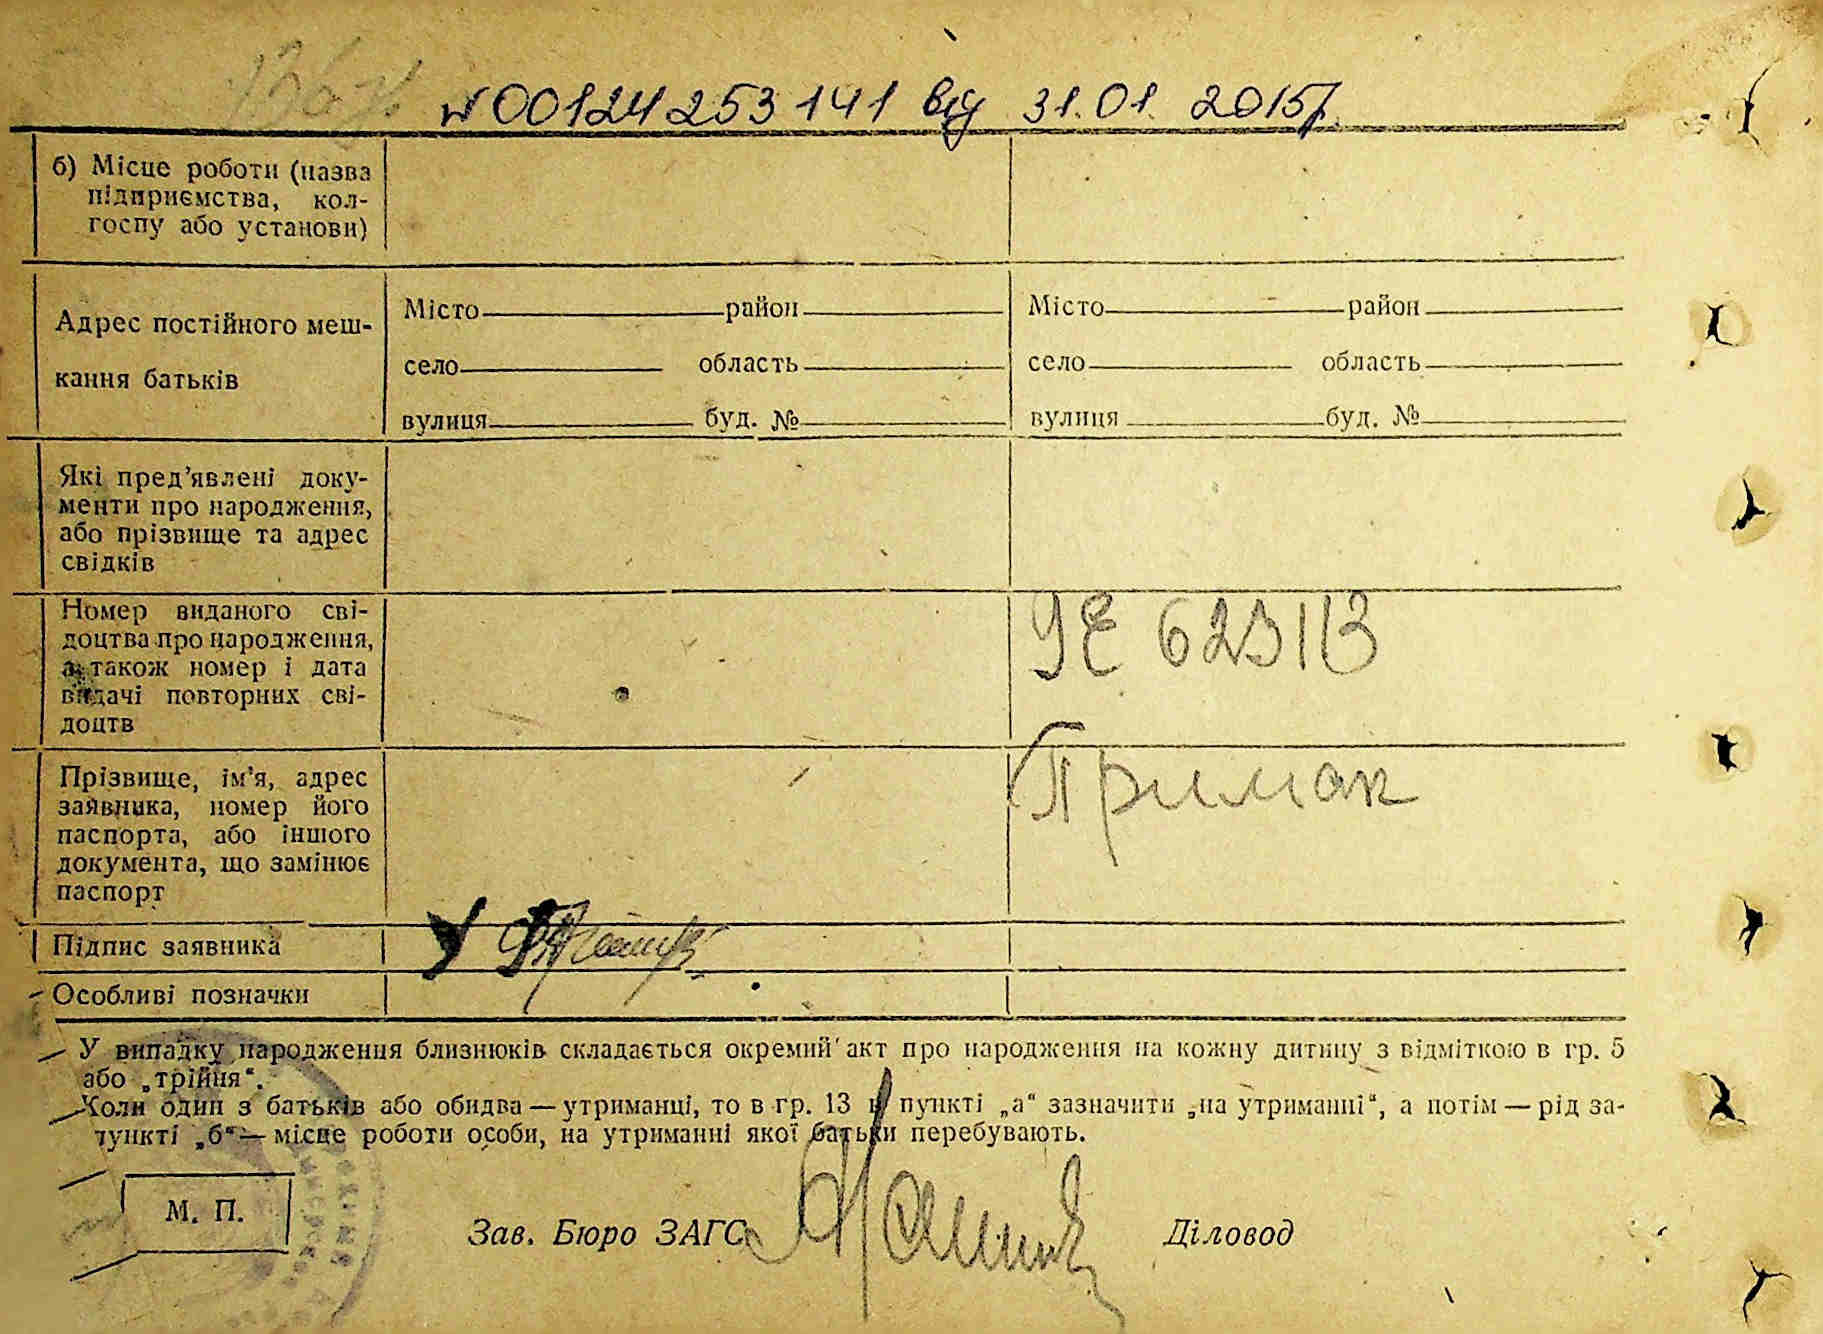 № 00124253141 від 31.01.2015р.
б) Місце роботи (назва
підприємства, кол-
госпу або установи)
Адрес постійного меш-
кання батьків
Місто район
село область
вулиця буд. №
Місто район
село область
вулиця буд. №
Які пред'явлені доку-
менти про народження,
або прізвище та адрес
свідків
Номер виданого сві-
доцтва про народження,
а також номер і дата
видачі повторних сві-
доцтв
623113
Прізвище, ім'я, адрес
заявника, номер його
паспорта, або іншого
документа, що замінює
паспорт
Примак
Підпис заявника
Особливі позначки
У випадку народження близнюків складається окремий акт про народження на кожну дитину з відміткою в гр. 5
або „трійня“.
Коли один з батьків або обидва — утриманці, то в гр. 13 в пункті „а“ зазначити „на утриманні“, а потім — рід за-
пункті „б“ — місце роботи особи, на утриманні якої батьки перебувають.
М. П.
Зав. Бюро ЗАГС Діловод